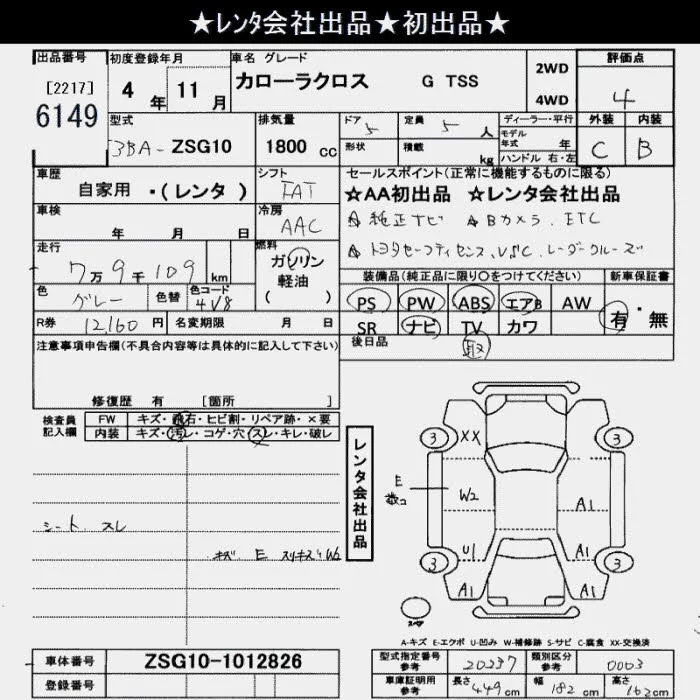 ★レンタ会社出品★初出品★
出品番号 [2217] 6149
初度登録年月 4年 11月
車名 グレード カローラクロス G TSS
2WD
4WD
評価点 4
外装 C 内装 B
型式 3BA-ZSG10
排気量 1800 cc
ドア 5 定員 5 人
形状 積載 kg
ディーラー・平行
モデル年式 年
ハンドル 右・左
車歴 自家用・(レンタ)
シフト FAT
車検 年 月 日
冷房 AAC
走行 7万9千109 km
燃料 ガソリン 軽油 ( )
色 グレー 色替 色コード 4V8
R券 12160 円 名変期限 月 日
セールスポイント(正常に機能するものに限る)
☆AA初出品 ☆レンタ会社出品
☆純正ナビ ☆Bカメラ、ETC
☆トヨタセーフティセンス、VSC、レーダークルーズ
装備品(純正品に限り○をつけてください)
新車保証書
PS PW ABS エアB AW
SR ナビ TV カワ
有・無
後日品 取
注意事項申告欄(不具合内容等は具体的に記入して下さい)
修復歴 有 [箇所 ]
検査員記入欄
FW キズ・飛石・ヒビ割・リペア跡・×要
内装 キズ・汚レ・コゲ・穴・スレ・キレ・破レ
シート スレ
キズ E スリキズ W2
レンタ会社出品
3 XX 3
E 数コ W2 A1
3 U1 A1 3
A1 A1
スペア
A-キズ E-エクボ U-凹み W-補修跡 S-サビ C-腐食 XX-交換済
車体番号 ZSG10-1012826
登録番号
型式指定番号 参考 20237
類別区分 参考 0003
車庫証明用 参考 長さ 449cm 幅 182cm 高さ 162cm